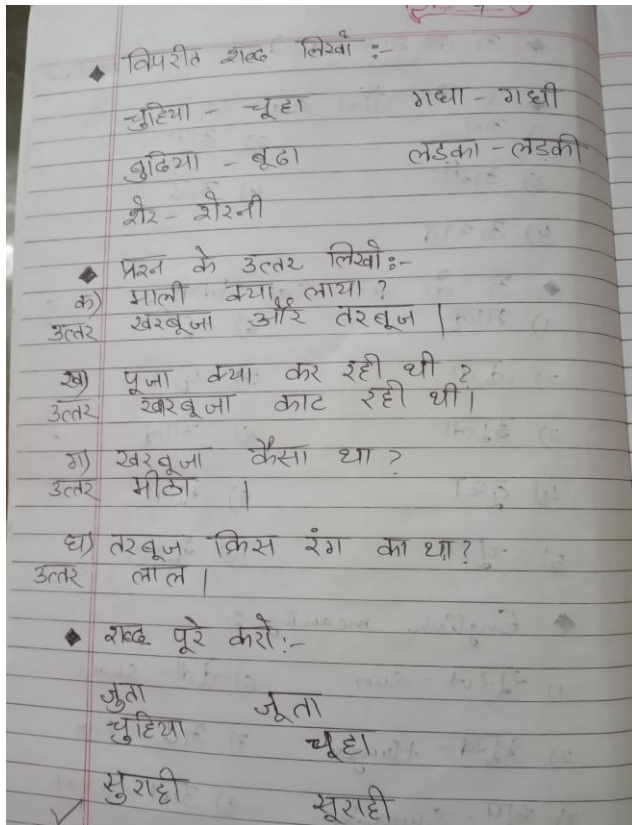 ◆ विपरीत शब्द लिखो :-
चुहिया - चूहा गधा - गधी
बुढिया - बूढा लड़का - लड़की
शेर - शेरनी
◆ प्रश्न के उत्तर लिखो :-
क) माली क्या लाया ?
उत्तर खरबूजा और तरबूज |
ख) पूजा क्या कर रही थी ?
उत्तर खरबूजा काट रही थी |
ग) खरबूजा कैसा था ?
उत्तर मीठा |
घ) तरबूज किस रंग का था ?
उत्तर लाल |
◆ शब्द पूरे करो :-
जुता जूता
चुहिया चूहा
सुराही सूराही